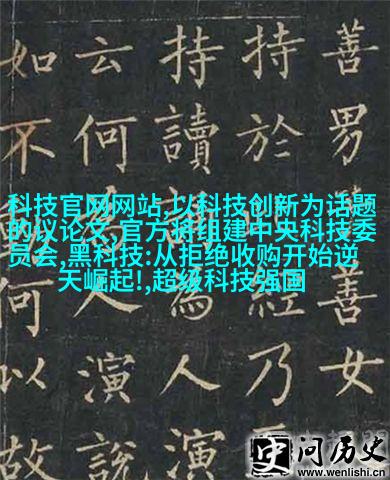 科技官网网站,以科技创新为话题
的议论文,官方将组建中央科技委
员会,黑科技:从拒绝收购开始逆
天崛起!,超级科技强国
善男善女
持於乃
持讀為人演
云何人演說
如不何以故
史问历史
www.wenlishi.cn